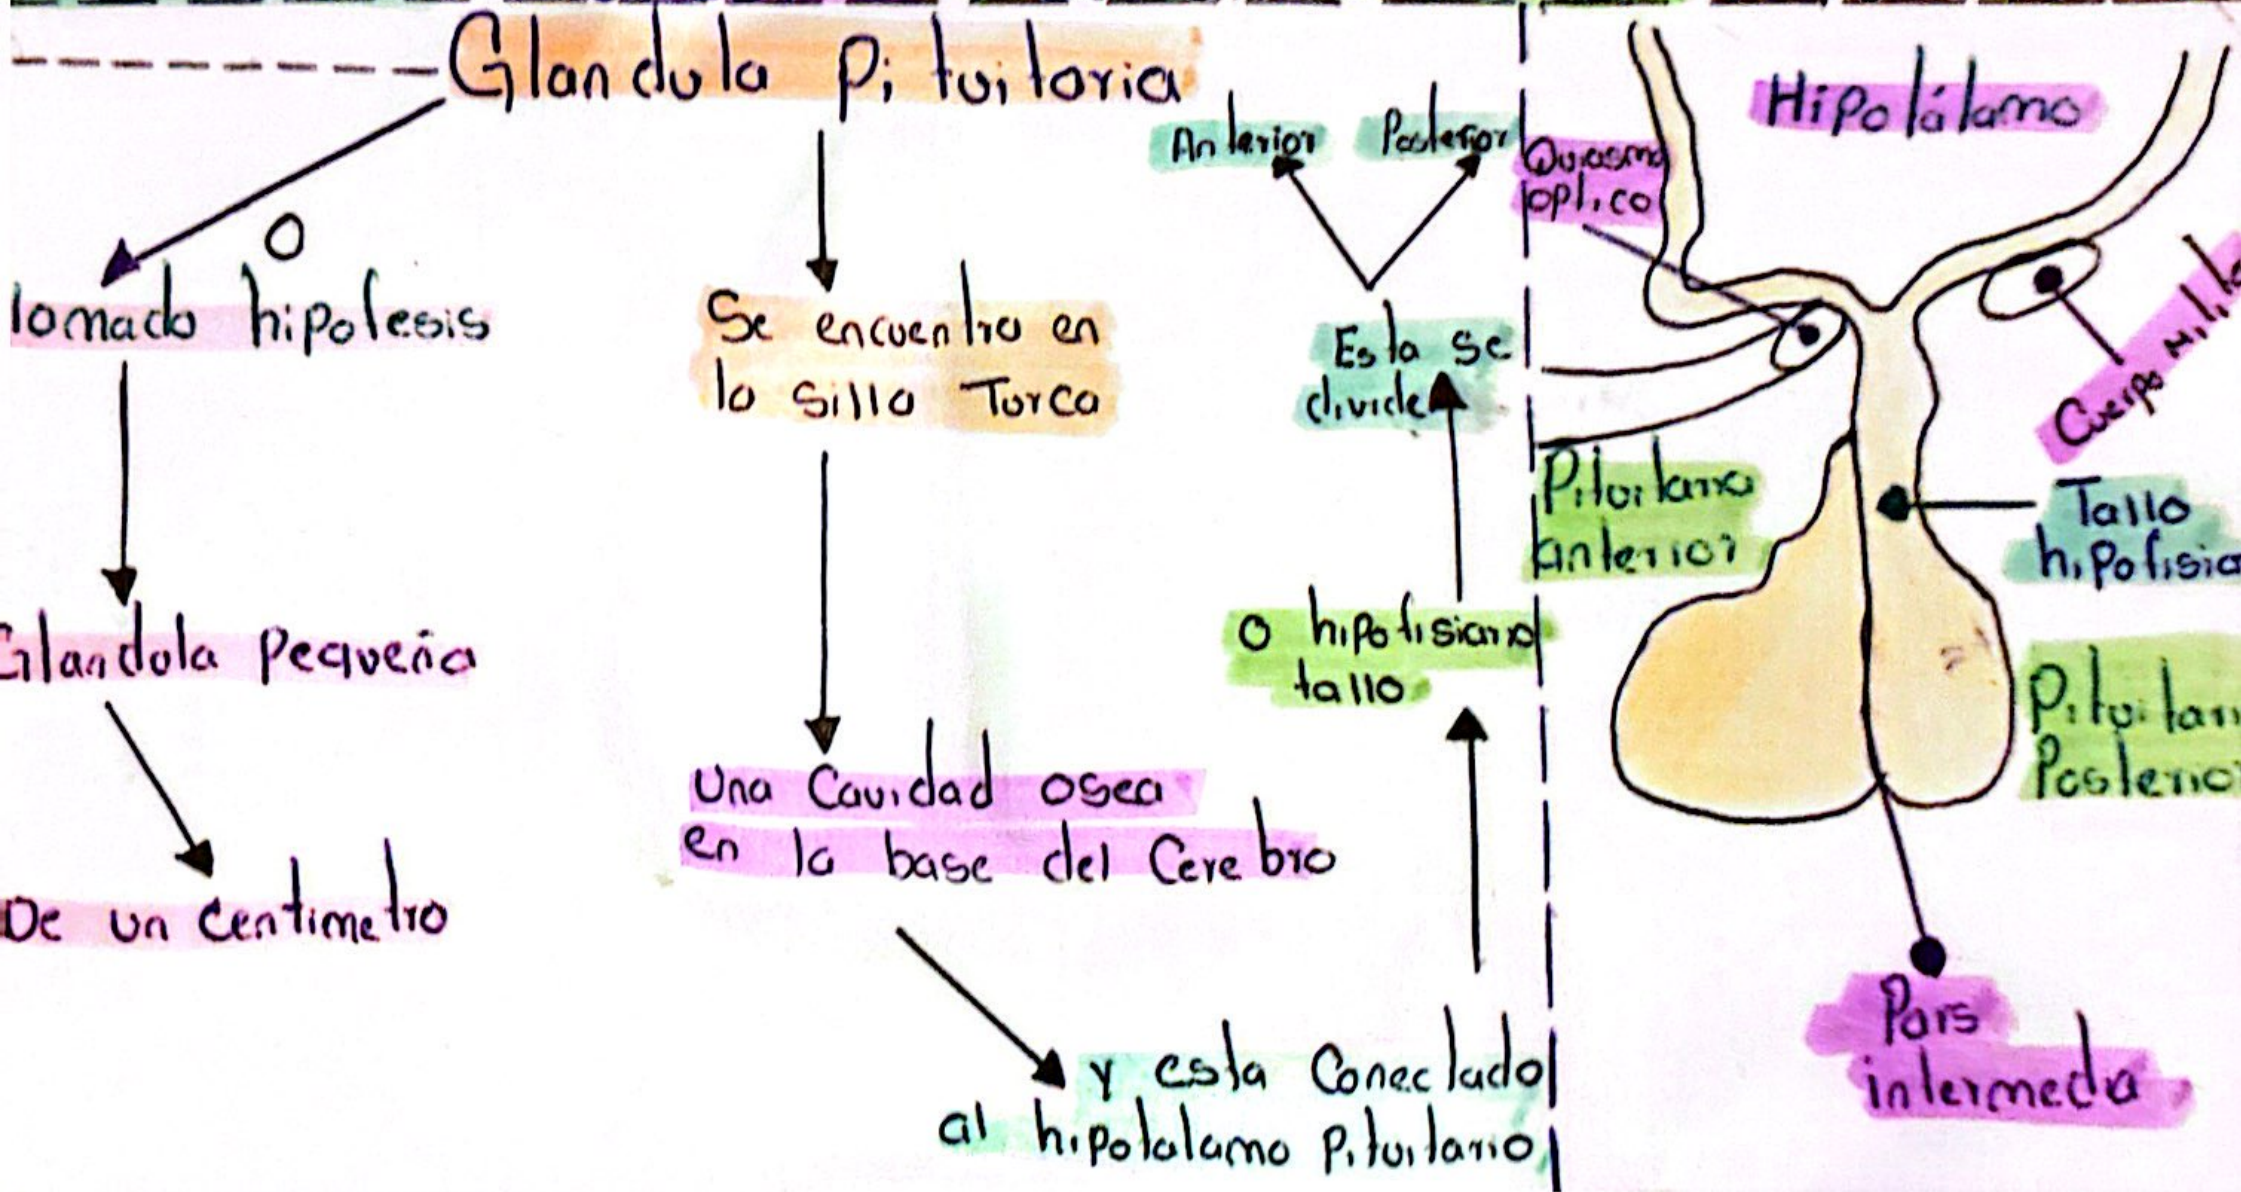 Glandula Pituitaria
O
llamado hipofesis
Glandula Pequeña
De un Centimetro
Se encuentra en
la Silla Turca
Una Cavidad osea
en la base del Cerebro
y esta Conectado
al hipotalamo Pituitario
o hipofisiario
tallo
Esta se
divide
Anterior Posterior
Hipotálamo
Quiasma
optico
Cuerpo
Pituitaria
anterior
Tallo
Posterior
Pars
intermedia